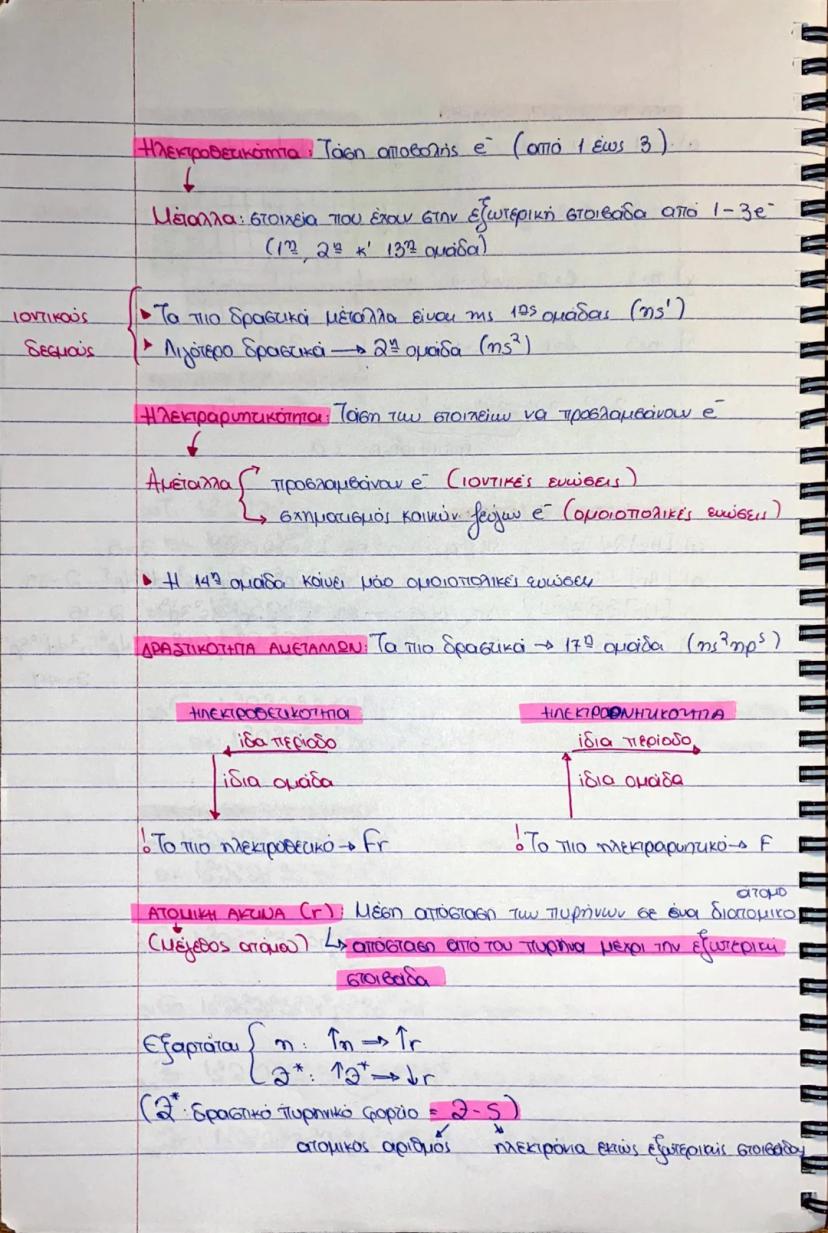 Ηλεκτροθετικότητα: Τάση αποβολής e⁻ (από 1 έως 3)
↓
Μέταλλα: στοιχεία που έχουν στην εξωτερική στοιβάδα από 1-3e⁻
(1η, 2η κ' 13η ομάδα)
ιοντικούς δεσμούς
▸ Τα πιο δραστικά μέταλλα είναι της 1ης ομάδας (ns¹)
▸ Λιγότερο δραστικά → 2η ομάδα (ns²)
Ηλεκτραρνητικότητα: Τάση των στοιχείων να προσλαμβάνουν e⁻
↓
Αμέταλλα { → προσλαμβάνουν e⁻ (ιοντικές ενώσεις)
→ σχηματισμός κοινών ζεύγων e⁻ (ομοιοπολικές ενώσεις)
▸ Η 14η ομάδα κάνει μόνο ομοιοπολικές ενώσεις
ΔΡΑΣΤΙΚΟΤΗΤΑ ΑΜΕΤΑΛΛΩΝ: Τα πιο δραστικά → 17η ομάδα (ns²np⁵)
ΗΛΕΚΤΡΟΘΕΤΙΚΟΤΗΤΑ
ίδια περίοδο
ίδια ομάδα
! Το πιο ηλεκτροθετικό → Fr
ΗΛΕΚΤΡΟΑΡΝΗΤΙΚΟΤΗΤΑ
ίδια περίοδο
ίδια ομάδα
! Το πιο ηλεκτραρνητικό → F
ΑΤΟΜΙΚΗ ΑΚΤΙΝΑ (r): Μέση απόσταση των πυρήνων σε ένα διατομικό άτομο
(Μέγεθος ατόμου) ↳ απόσταση από του πυρήνα μέχρι την εξωτερική
στοιβάδα
Εξαρτάται { n: ↑n → ↑r
Z*: ↑Z* → ↓r
(Z*: δραστικό πυρηνικό φορτίο = Z - S)
ατομικός αριθμός ηλεκτρόνια εκτός εξωτερικής στοιβάδας